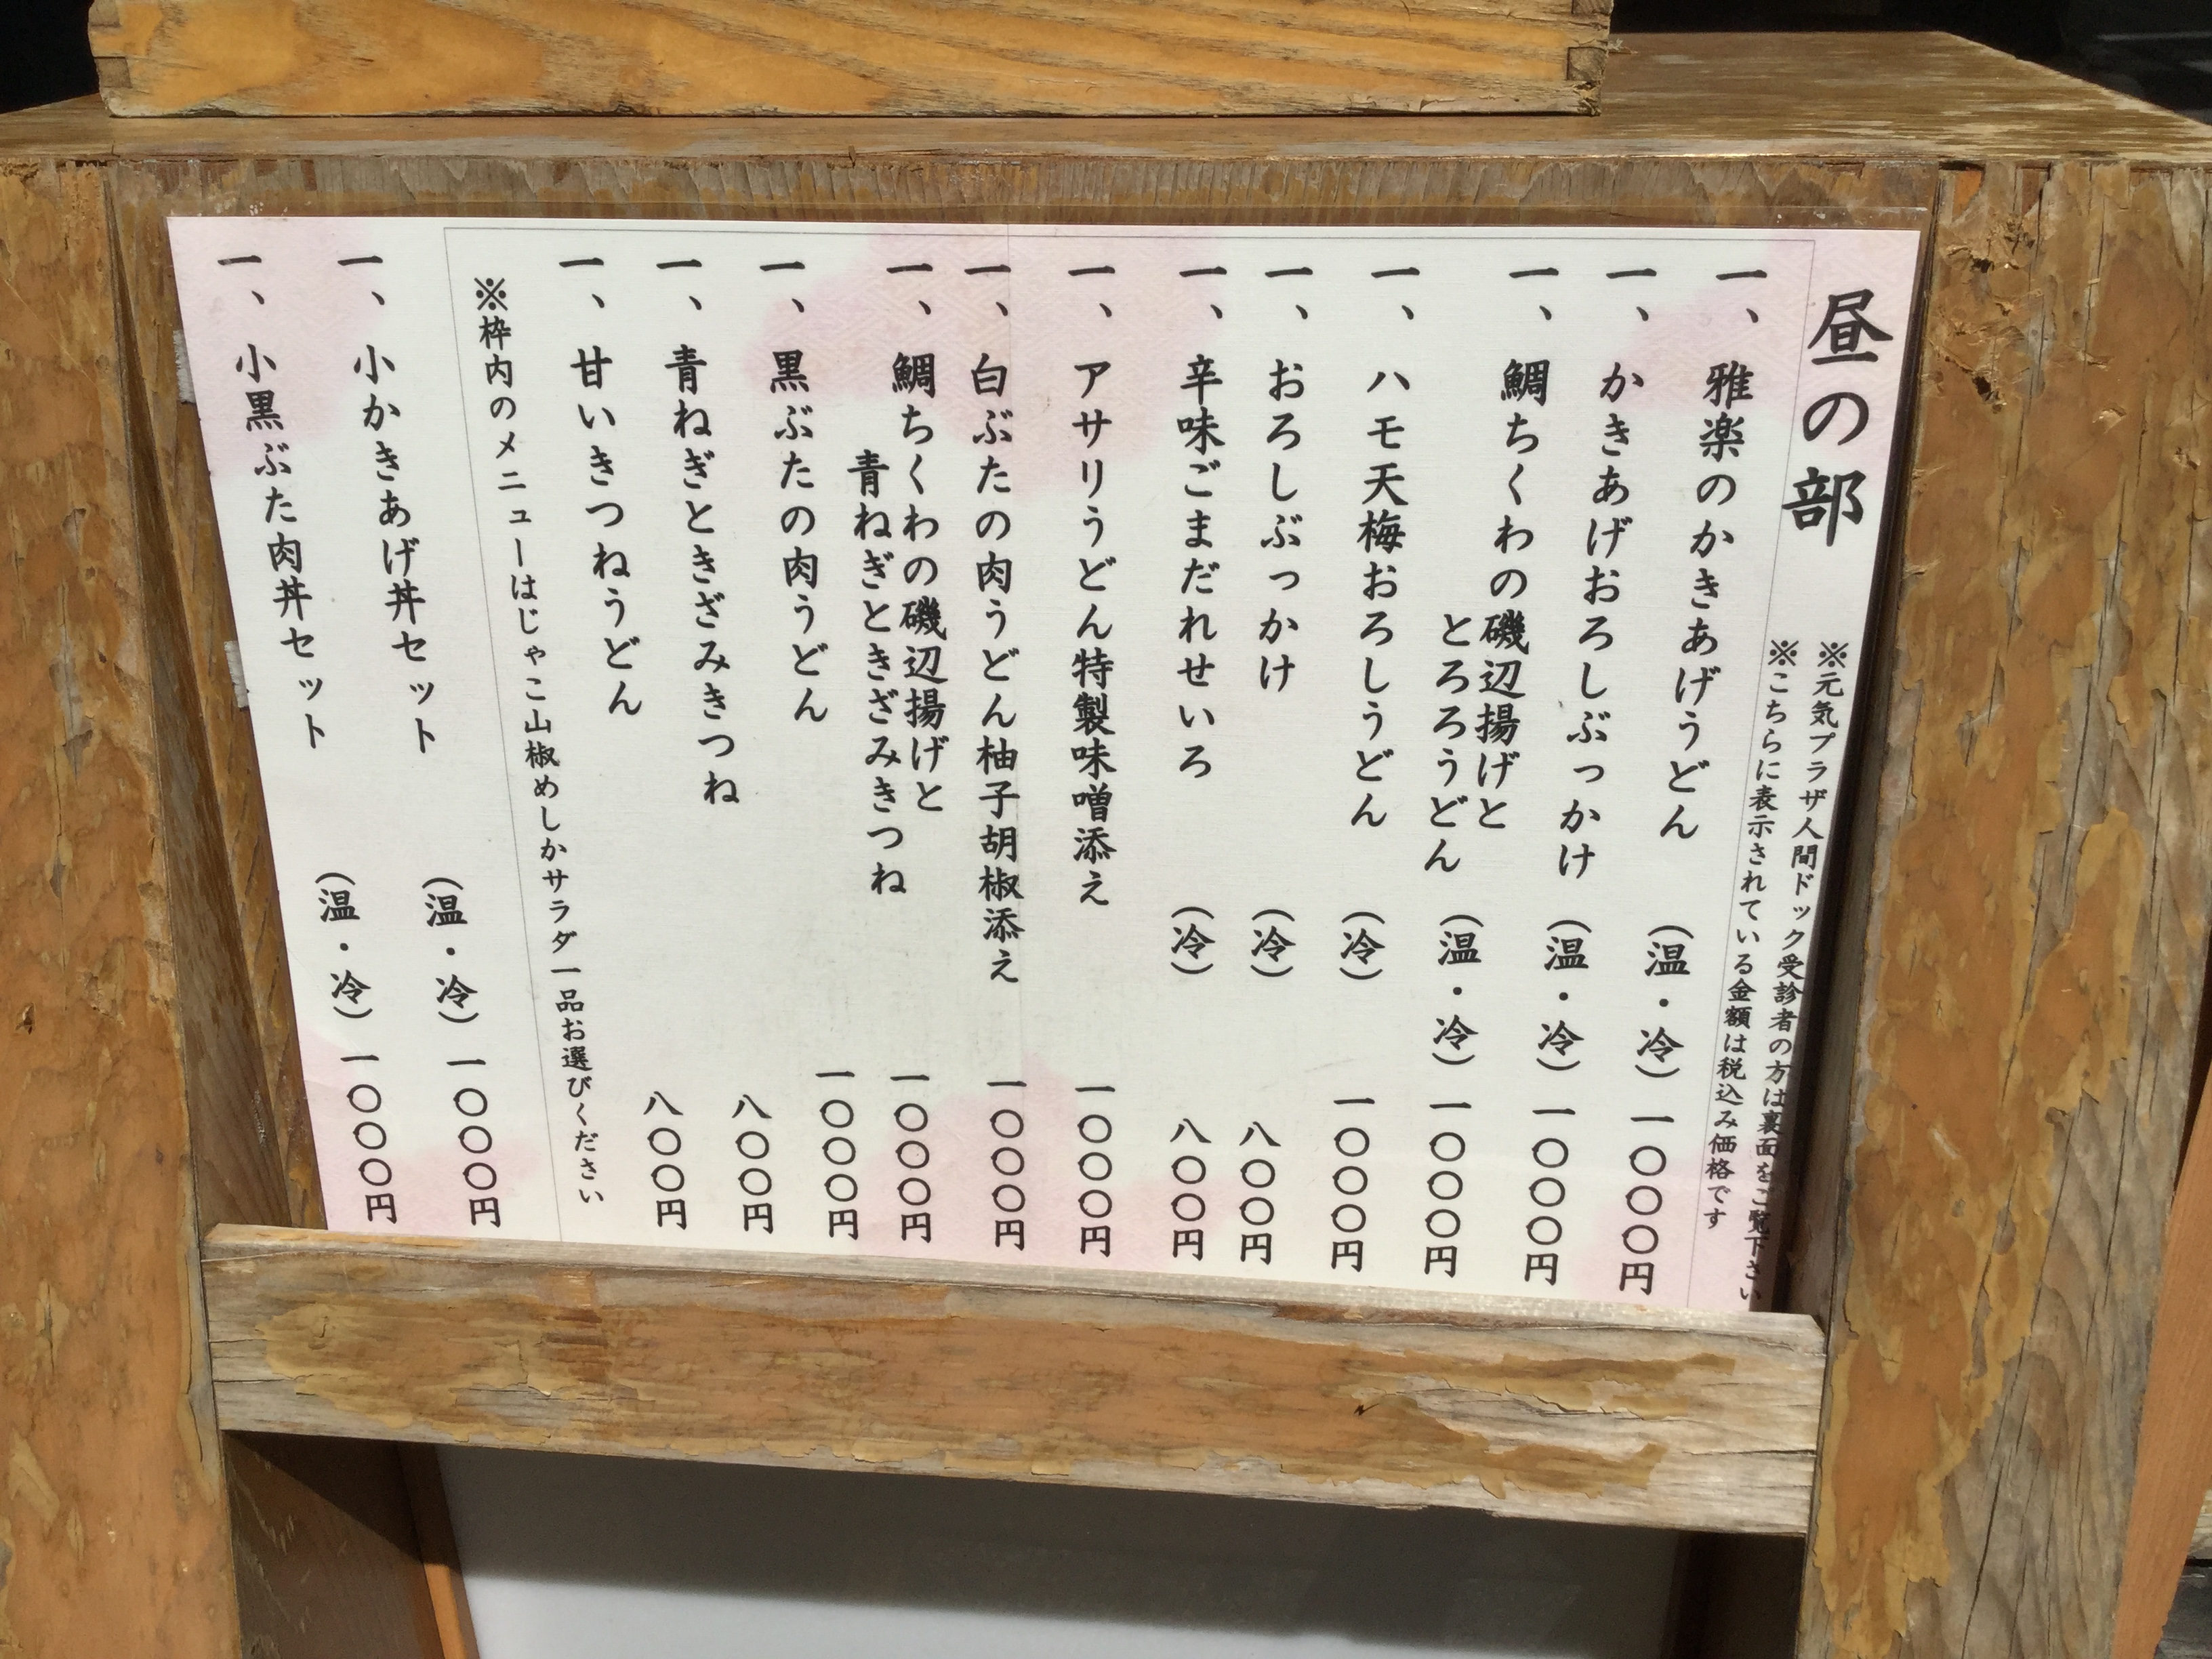 昼の部
※元気プラザ人間ドック受診者の方は裏面をご覧下さい
※こちらに表示されている金額は税込み価格です
一、雅楽のかきあげうどん（温・冷）一〇〇〇円
一、かきあげおろしぶっかけ（温・冷）一〇〇〇円
一、鯛ちくわの磯辺揚げと
とろろうどん（温・冷）一〇〇〇円
一、ハモ天梅おろしうどん（冷）一〇〇〇円
一、おろしぶっかけ（冷）八〇〇円
一、辛味ごまだれせいろ（冷）八〇〇円
一、アサリうどん特製味噌添え 一〇〇〇円
一、白ぶたの肉うどん柚子胡椒添え 一〇〇〇円
一、鯛ちくわの磯辺揚げと
青ねぎときざみきつね 一〇〇〇円
一、黒ぶたの肉うどん 一〇〇〇円
一、青ねぎときざみきつね 八〇〇円
一、甘いきつねうどん 八〇〇円
※枠内のメニューはじゃこ山椒めしかサラダ一品お選びください
一、小かきあげ丼セット（温・冷）一〇〇〇円
一、小黒ぶた肉丼セット（温・冷）一〇〇〇円